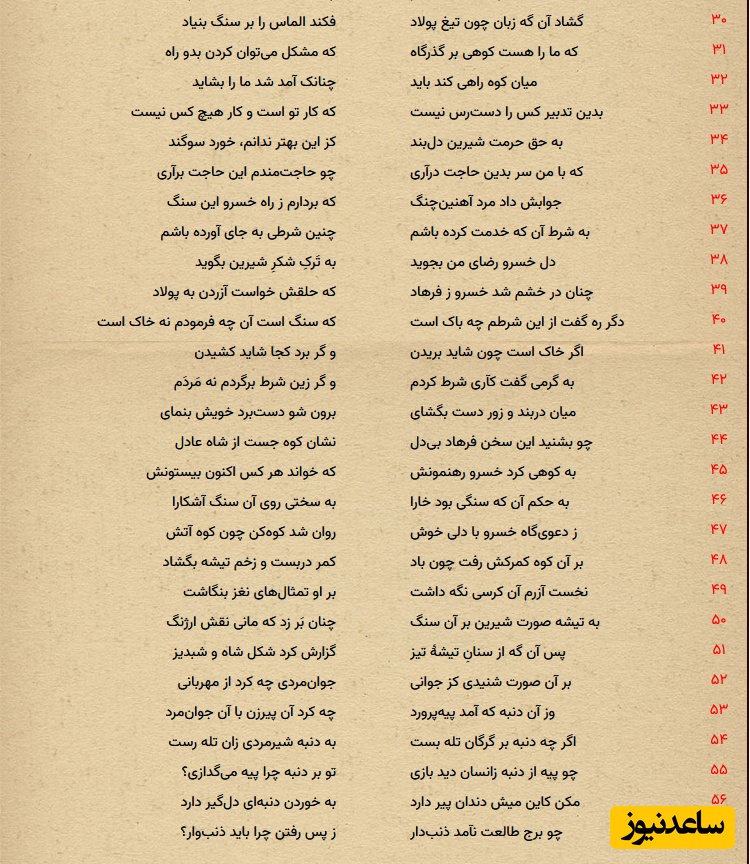 ۳۰ گشاد آن گه زبان چون تیغ پولاد فکند الماس را بر سنگ بنیاد
۳۱ که ما را هست کوهی بر گذرگاه که مشکل می‌توان کردن بدو راه
۳۲ میان کوه راهی کند باید چنانک آمد شد ما را بشاید
۳۳ بدین تدبیر کس را دست‌رس نیست که کار تو است و کار هیچ کس نیست
۳۴ به حق حرمت شیرین دل‌بند کز این بهتر ندانم، خورد سوگند
۳۵ که با من سر بدین حاجت درآری چو حاجت‌مندم این حاجت برآری
۳۶ جوابش داد مرد آهنین‌چنگ که بردارم ز راه خسرو این سنگ
۳۷ به شرط آن که خدمت کرده باشم چنین شرطی به جای آورده باشم
۳۸ دل خسرو رضای من بجوید به تَرکِ شکرِ شیرین بگوید
۳۹ چنان در خشم شد خسرو ز فرهاد که حلقش خواست آزردن به پولاد
۴۰ دگر ره گفت از این شرطم چه باک است که سنگ است آن چه فرمودم نه خاک است
۴۱ اگر خاک است چون شاید بریدن و گر برد کجا شاید کشیدن
۴۲ به گرمی گفت کآری شرط کردم و گر زین شرط برگردم نه مَردَم
۴۳ میان دربند و زور دست بگشای برون شو دست‌برد خویش بنمای
۴۴ چو بشنید این سخن فرهاد بی‌دل نشان کوه جست از شاه عادل
۴۵ به کوهی کرد خسرو رهنمونش که خواند هر کس اکنون بیستونش
۴۶ به حکم آن که سنگی بود خارا به سختی روی آن سنگ آشکارا
۴۷ ز دعوی‌گاه خسرو با دلی خوش روان شد کوه‌کن چون کوه آتش
۴۸ بر آن کوه کمرکش رفت چون باد کمر دربست و زخم تیشه بگشاد
۴۹ نخست آزرم آن کرسی نگه داشت بر او تمثال‌های نغز بنگاشت
۵۰ به تیشه صورت شیرین بر آن سنگ چنان بَر زد که مانی نقش ارژنگ
۵۱ پس آن گه از سنانِ تیشهٔ تیز گزارش کرد شکل شاه و شبدیز
۵۲ بر آن صورت شنیدی کز جوانی جوان‌مردی چه کرد از مهربانی
۵۳ وز آن دنبه که آمد پیه‌پرورد چه کرد آن پیرزن با آن جوان‌مرد
۵۴ اگر چه دنبه بر گرگان تله بست به دنبه شیرمردی زان تله رست
۵۵ چو پیه از دنبه زانسان دید بازی تو بر دنبه چرا پیه می‌گدازی؟
۵۶ مکن کاین میش دندان پیر دارد به خوردن دنبه‌ای دل‌گیر دارد
چو برج طالعت نآمد ذنب‌دار ز پس رفتن چرا باید ذنب‌وار؟
ساعدنیوز